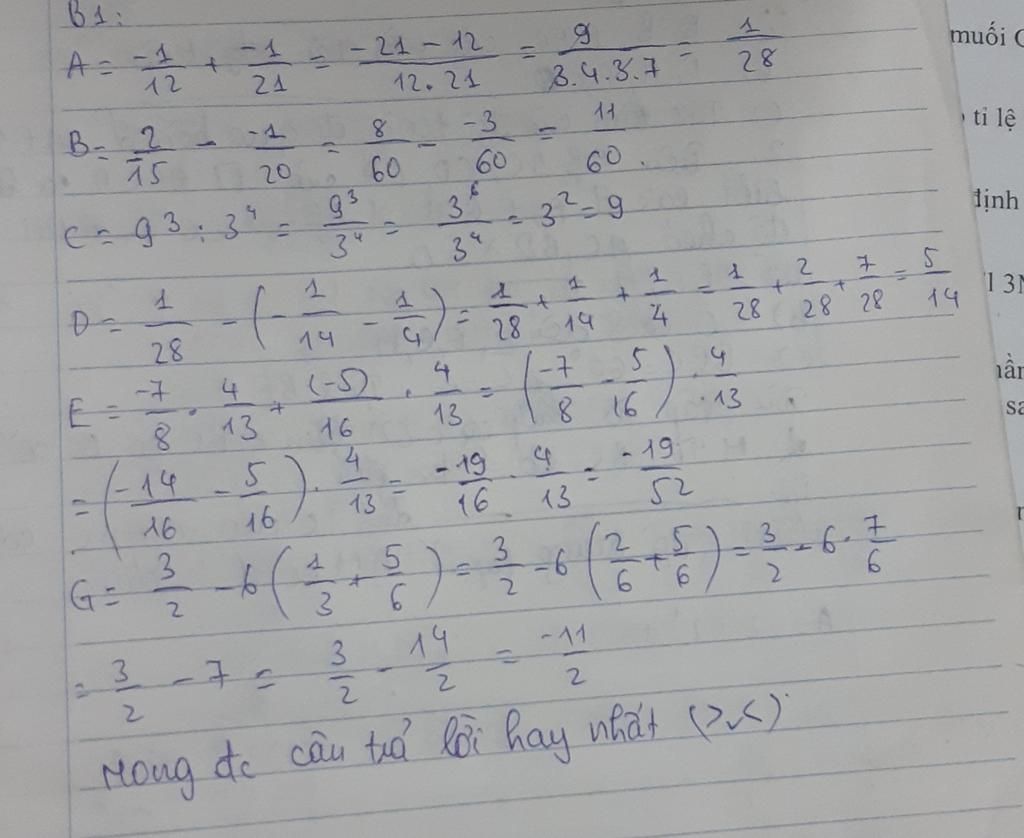 B1:
A = -1/12 + -1/21 = -21-12/12.21 = 9/3.4.3.7 = 1/28
B = 2/15 - -1/20 = 8/60 - -3/60 = 11/60.
C = 9³ : 3⁴ = 9³/3⁴ = 3⁶/3⁴ = 3² = 9
D = 1/28 - (-1/14 - 1/4) = 1/28 + 1/14 + 1/4 = 1/28 + 2/28 + 7/28 = 5/14
E = -7/8 . 4/13 + (-5)/16 . 4/13 = (-7/8 - 5/16) . 4/13 .
= (-14/16 - 5/16) . 4/13 = -19/16 . 4/13 = -19/52
G = 3/2 - 6(1/3 + 5/6) = 3/2 - 6(2/6 + 5/6) = 3/2 - 6 . 7/6
= 3/2 - 7 = 3/2 - 14/2 = -11/2
Mong đc câu trả lời hay nhất (>.<)
muối
tỉ lệ
định